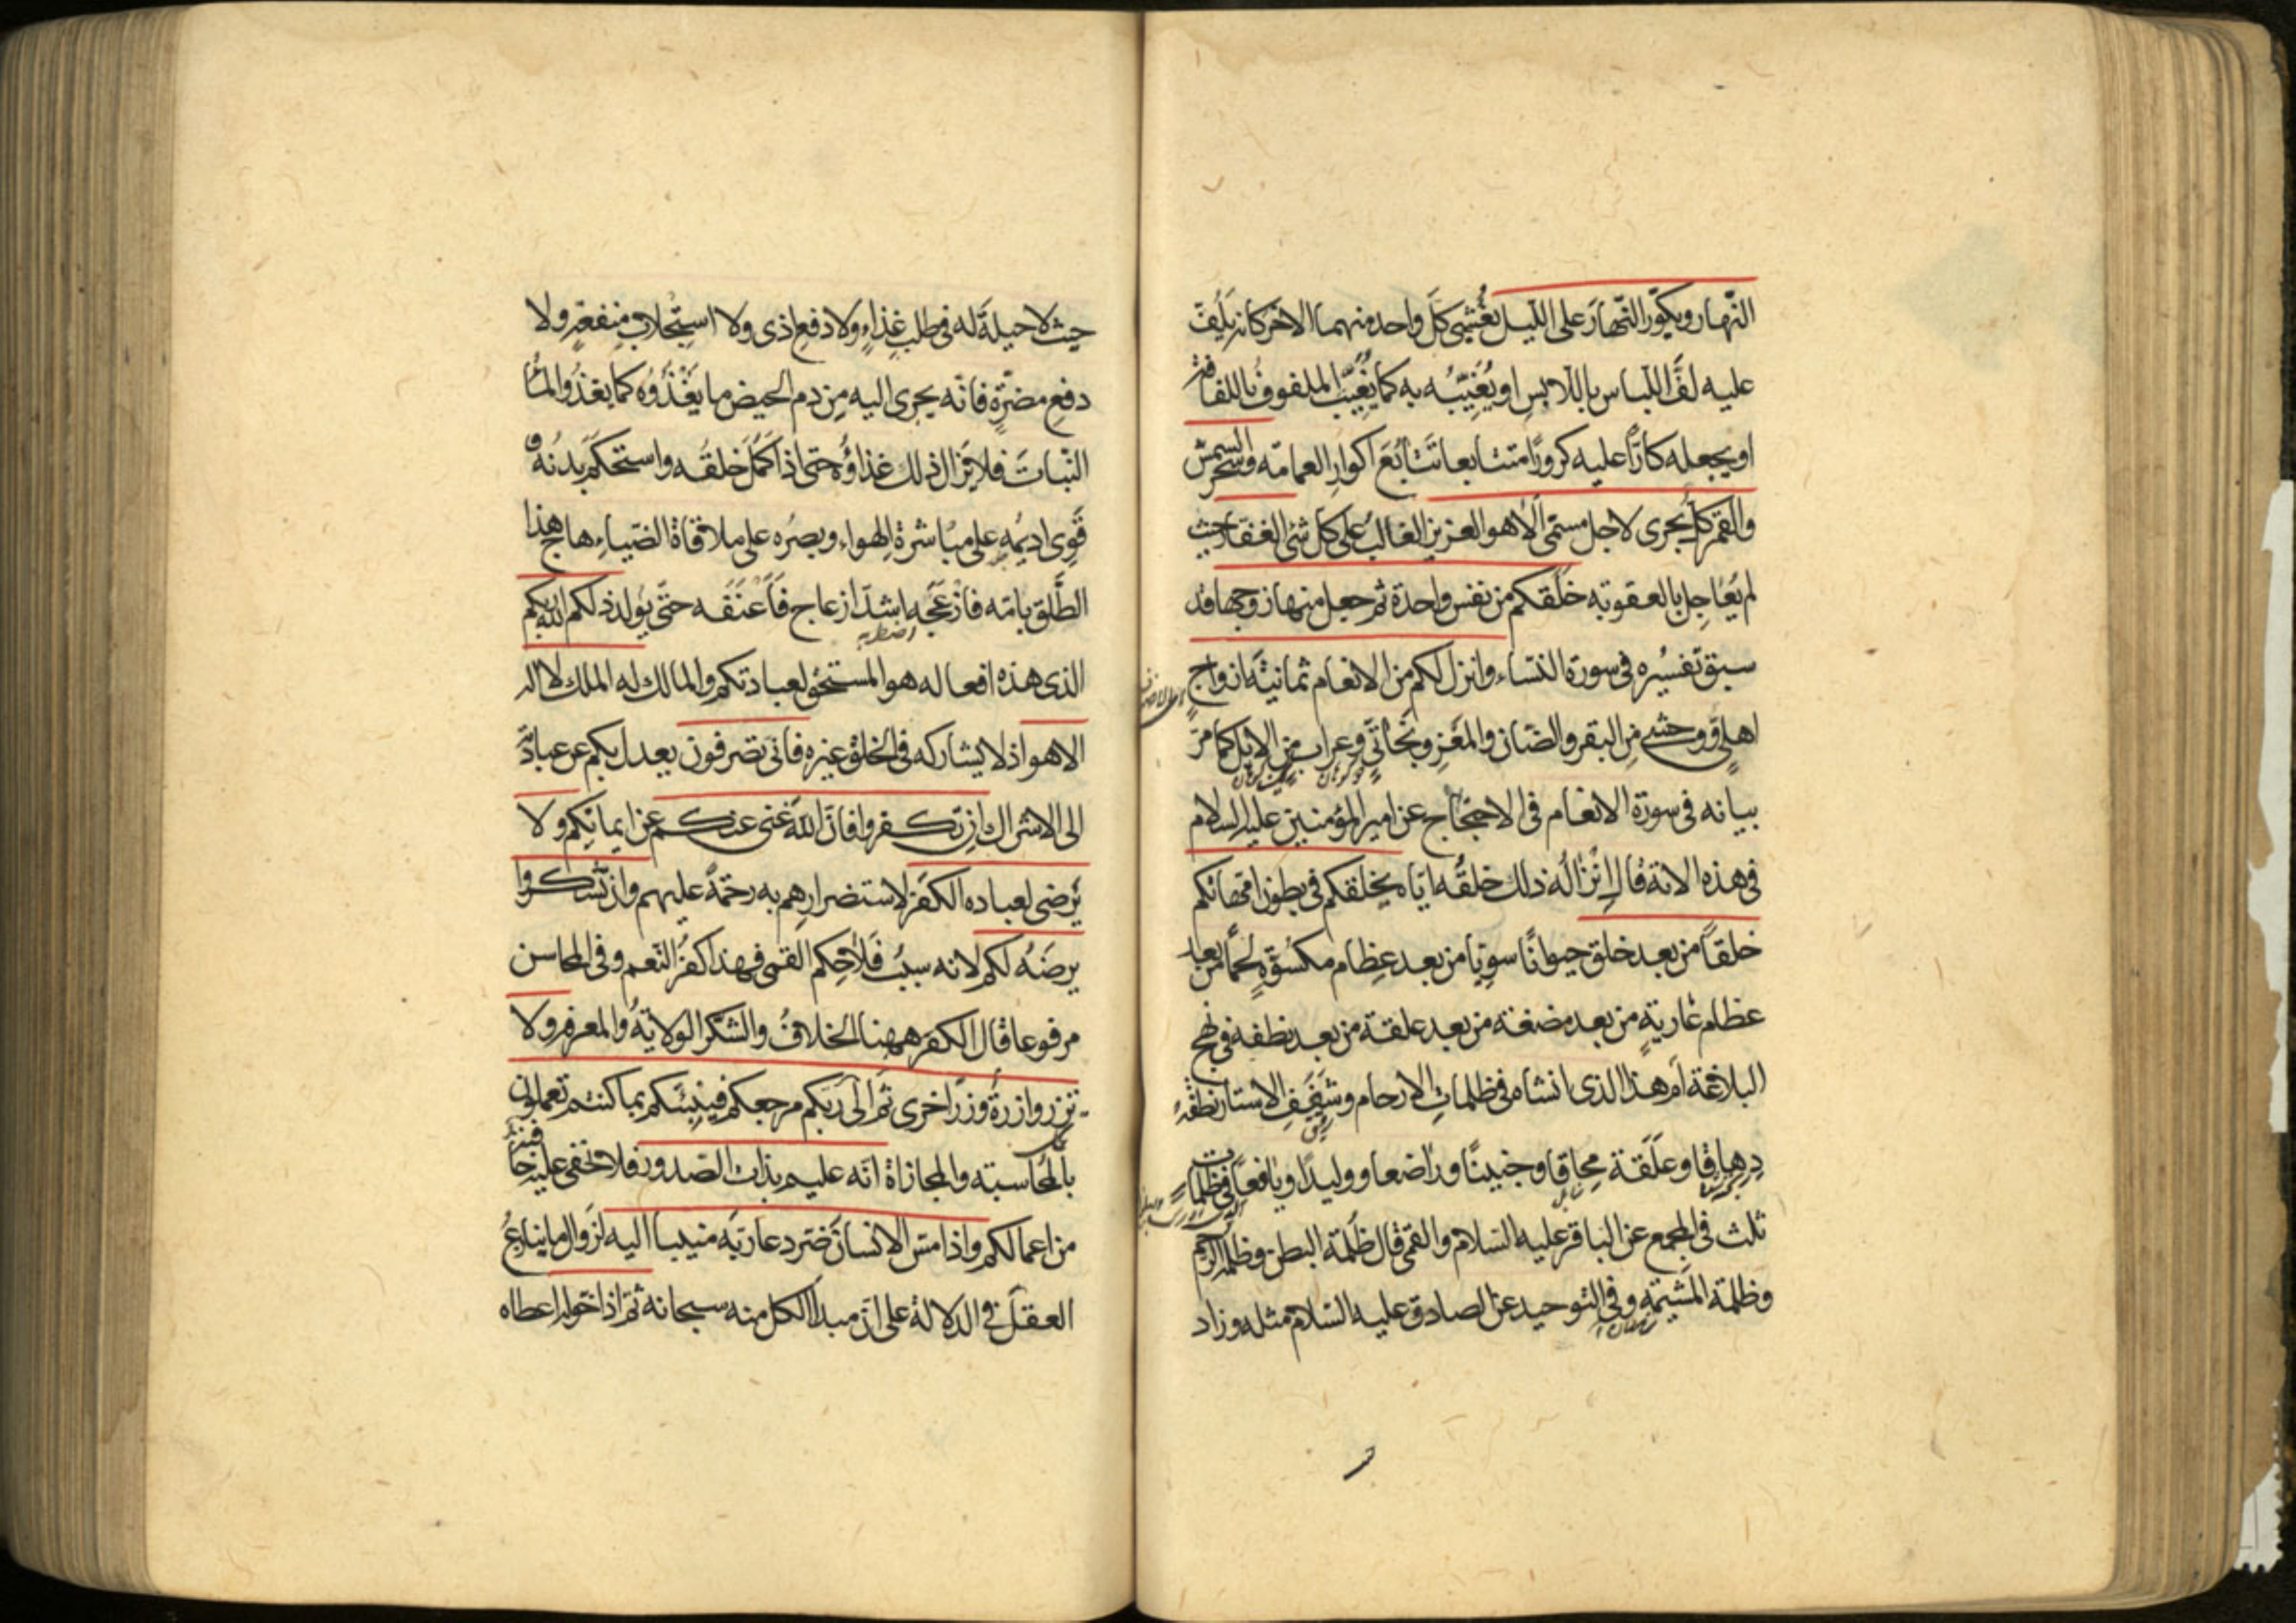 النهار ويكوّر النهارَ على الليل يُغشي كلّ واحد منهما الاخر كانه يَلُفّ
عليه لفَّ اللباس باللابسِ او يُغَيّبُه به كما يُغيَّب الملفوفُ باللفافة
او يجعله كارّاً عليه كروراً متتابعا تَتابُعَ اكوارِ العمامة وسخر الشمس
والقمر كل يجرى لاجل مسمّى الا هو العزيز الغالبُ على كل شئ الغفار حيث
لم يُعاجِل بالعقوبة خلقكم من نفس واحدة ثم جعل منها زوجها قد
سبق تفسيُره فى سورة النساء وانزل لكم من الانعام ثمانيةَ ازواج
اهليٍّ ووحشي مِن البقر والضان والمَعْزِ وبَخاتيّ وعِراب من الابل كما مرّ
بيانه فى سورة الانعام فى الاحتجاج عن امير المؤمنين عليه السلام
فى هذه الاية قال اِنْزالُه ذلك خلقُه ايّاه يخلقكم فى بطون امّهاتكم
خلقاً من بعد خلق حيوانًا سوِيا من بعد عِظام مكسُوّةٍ لحمًا من بعد
عظام عاريةٍ من بعد مضغة من بعد علقة من بعد نطفه فى نهج
البلاغة اَم هذا الذى انشاه فى ظلماتِ الارحام وشُغُفِ الاستار نطفةً
دِهاقا وعَلَقة مِحاقا وجنينًا وراضعا ووليدًا ويافعًا فى ظلمات
ثلث فى المجمع عن الباقر عليه السلام والقمى قال ظُلمة البطن وظلمة الرحم
وظلمة المَشيمةِ وفى التوحيد عن الصادق عليه السّلام مثله وزاد
حيث لا حيلةَ له فى طلبِ غِذاءٍ ولا دفع اذى ولا استجلاب منفعةٍ ولا
دفعِ مضرّةٍ فانّه يجرى اليه مِن دم الحيض ما يَغْذُوُه كما يغذُو الماءُ
النّباتَ فلا يَزال ذلك غذاؤُه حتى اذا كَمُلَ خلقُه واستحكمَ بدنُه و
قَوِى اديمُه على مباشرة الهواء وبصرُه على ملاقاة الضّياء هاج هذا
الطَّلق بامّه فازْعَجَه اشدّ ازعاج فاَعْنَفَه حتى يُولد ذلكم الله ربكم
الذى هذه افعاله هو المستحق لعبادتكم والمالك له الملك لا اله
الا هو اذ لا يشاركه فى الخلق غيره فانى تصرفون يعدل بكم عن عبادته
الى الاشراك اِن تكفروا فانّ اللهَ غنى عنكم عن ايمانِكم ولا
يرضى لعباده الكفر لاستضرارِهم به رحمةً عليهم وان تَشكروا
يرضَهُ لكم لانه سببُ فَلاحِكم القمى فهذا كفرُ النّعم وفى المحاسن
مرفوعا قال الكفر ههنا الخلافُ والشكر الولايةُ والمعرفة ولا
تزر وازرةٌ وزرَ اخرى ثم الى ربّكم مرجعكم فينبئكم بما كنتم تعملون
بالمحاسبة والمجازاة انّه عليم بذات الصّدور فلا تخفى عليه خافية
من اعمالكم واذا مسّ الانسانَ ضر دعا ربّه منيبا اليه لزوال ما ينازعُ
العقلَ فى الدلالة على انّ مبدأ الكل منه سبحانه ثم اذا خوّله اعطاه